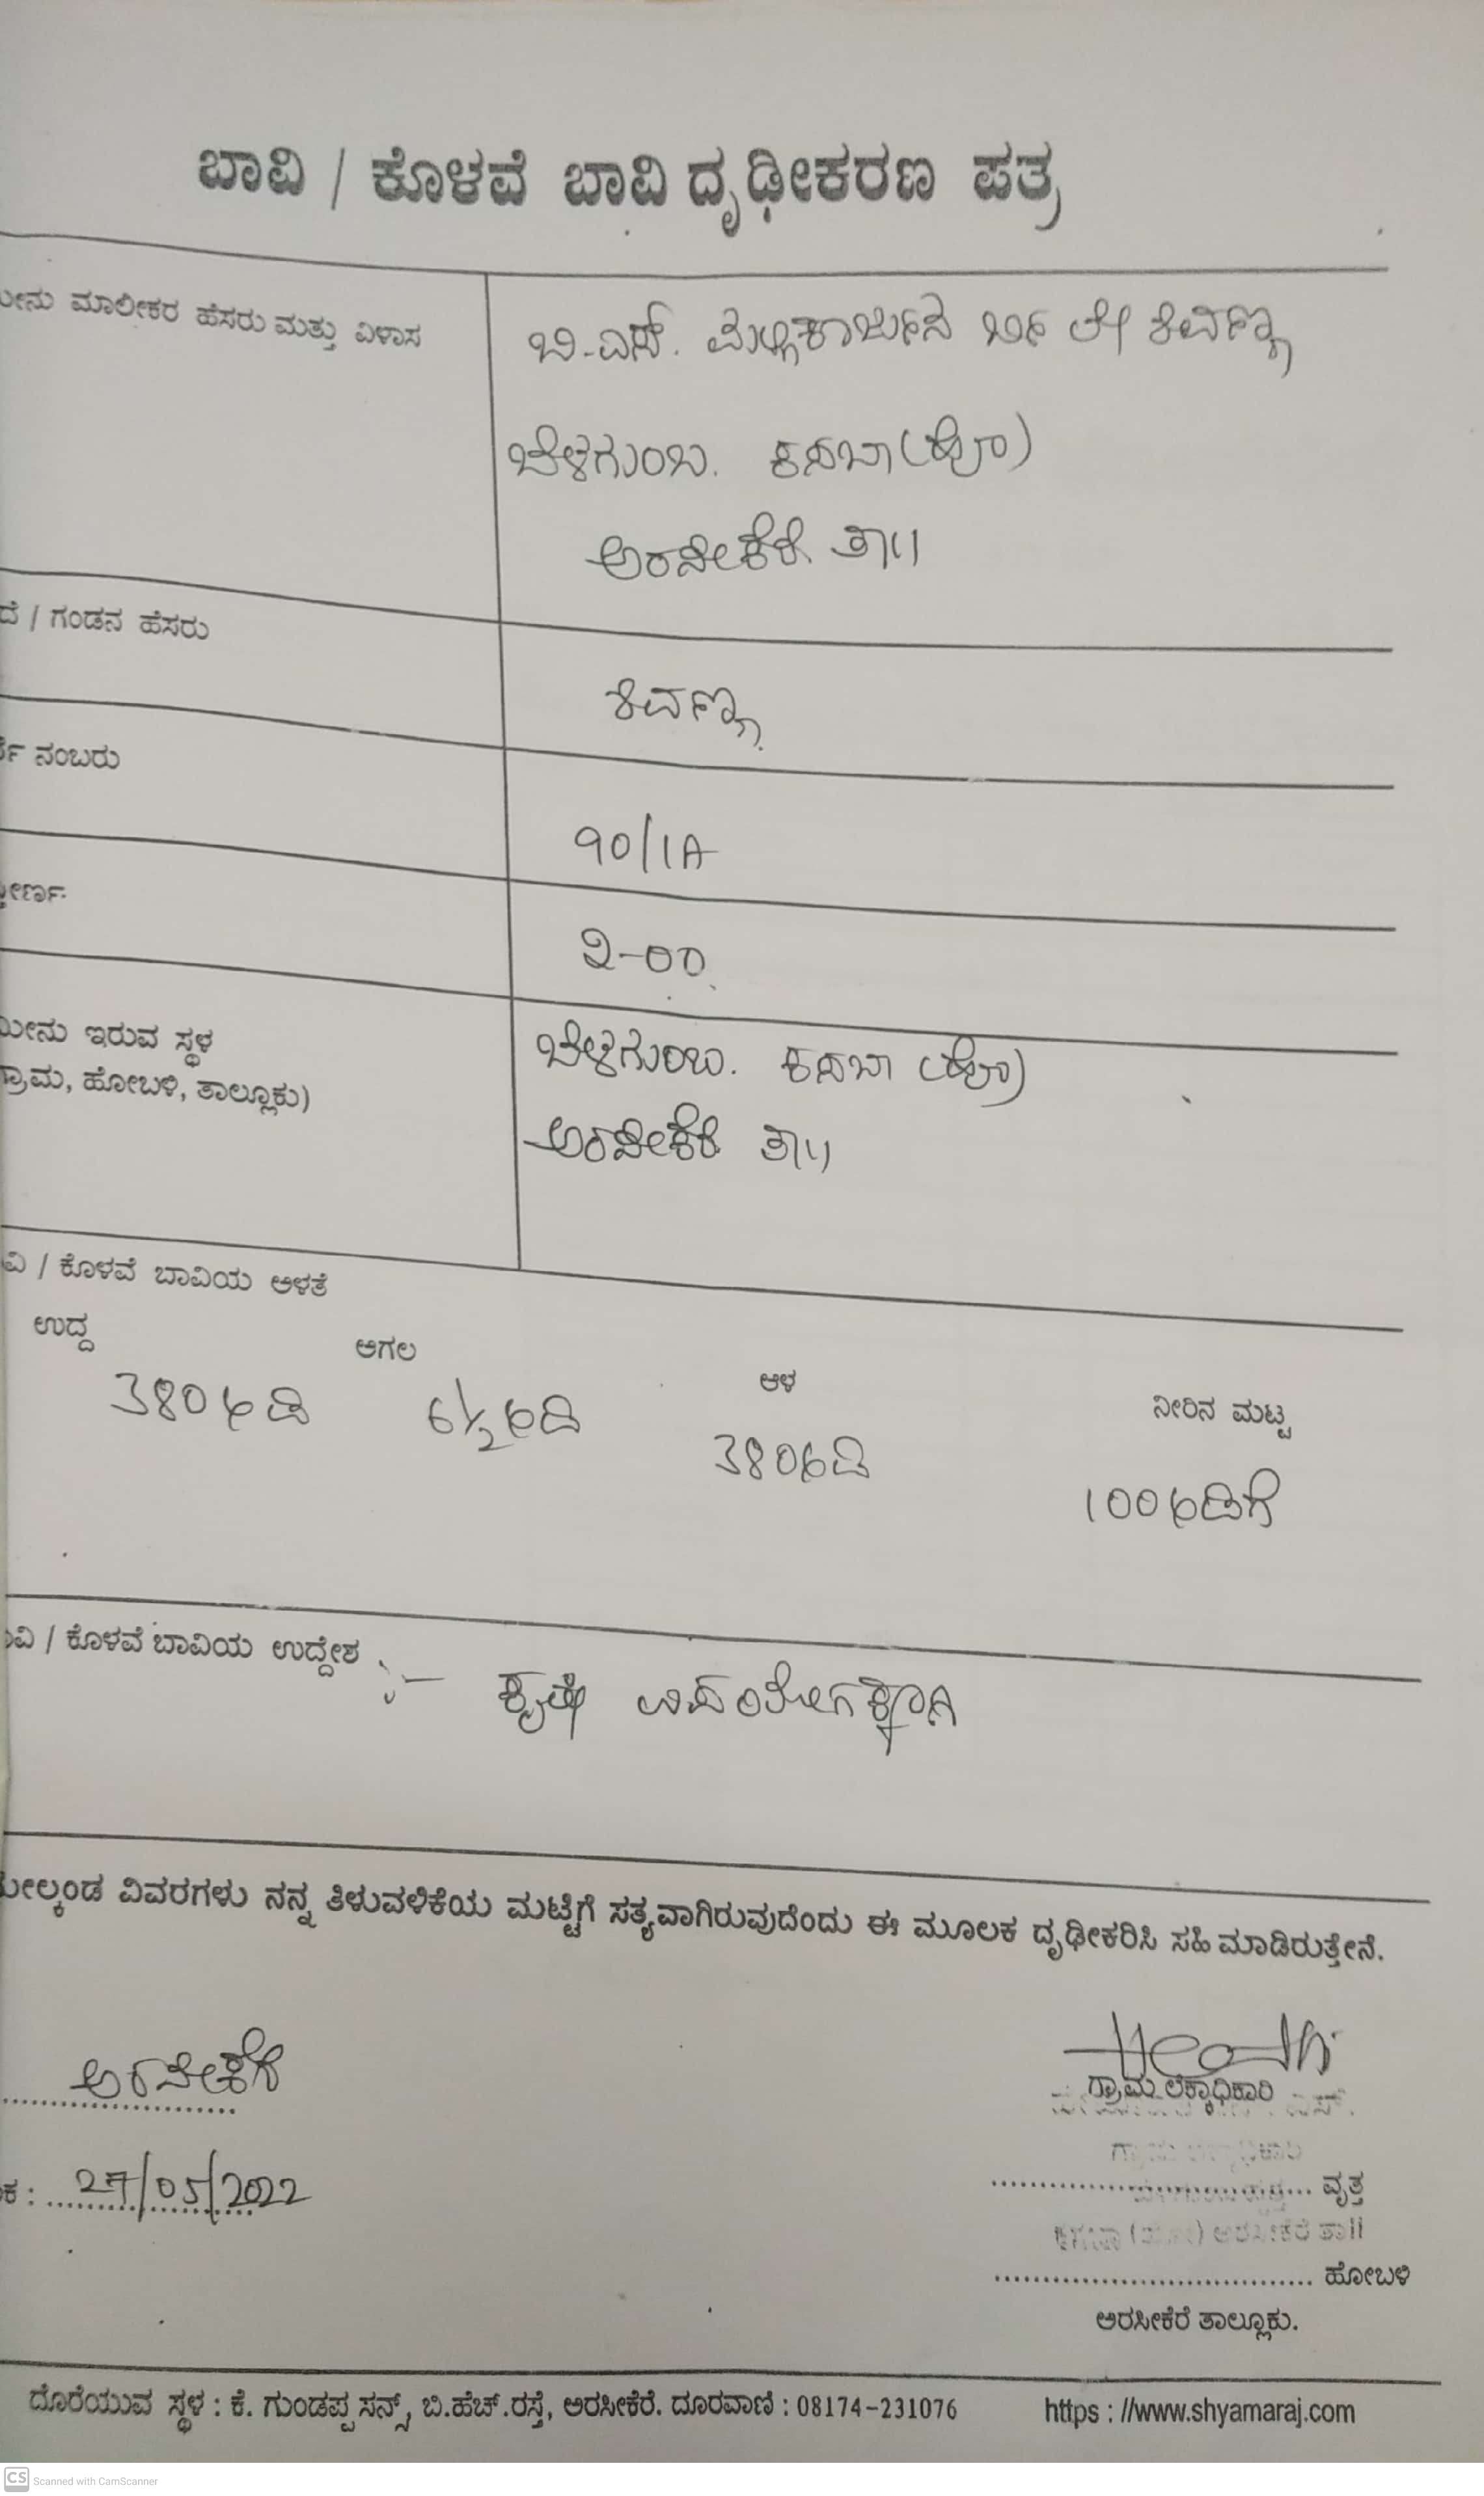 ಬಾವಿ / ಕೊಳವೆ ಬಾವಿ ದೃಢೀಕರಣ ಪತ್ರ
ಮೀನು ಮಾಲೀಕರ ಹೆಸರು ಮತ್ತು ವಿಳಾಸ
ಬಿ.ಎಸ್. ಮಲ್ಲಿಕಾರ್ಜುನ ಬಿನ್ ಲೇ ಶಿವಣ್ಣ
ಬೆಳಗುಂಬ. ಕಸಬಾ (ಹೋ)
ಅರಸೀಕೆರೆ ತಾ||
ದೆ / ಗಂಡನ ಹೆಸರು
ಶಿವಣ್ಣ
ರ್ವೆ ನಂಬರು
90/1A
ಸ್ತೀರ್ಣ
2-00
ಮೀನು ಇರುವ ಸ್ಥಳ
ಗ್ರಾಮ, ಹೋಬಳಿ, ತಾಲ್ಲೂಕು)
ಬೆಳಗುಂಬ. ಕಸಬಾ (ಹೋ)
ಅರಸೀಕೆರೆ ತಾ||
ವಿ / ಕೊಳವೆ ಬಾವಿಯ ಅಳತೆ
ಉದ್ದ ಅಗಲ ಆಳ ನೀರಿನ ಮಟ್ಟ
380 ಅಡಿ 6½ ಅಡಿ 380 ಅಡಿ 100 ಅಡಿಗೆ
ವಿ / ಕೊಳವೆ ಬಾವಿಯ ಉದ್ದೇಶ :- ಕೃಷಿ
ಮೇಲ್ಕಂಡ ವಿವರಗಳು ನನ್ನ ತಿಳುವಳಿಕೆಯ ಮಟ್ಟಿಗೆ ಸತ್ಯವಾಗಿರುವುದೆಂದು ಈ ಮೂಲಕ ದೃಢೀಕರಿಸಿ ಸಹಿ ಮಾಡಿರುತ್ತೇನೆ.
ಅರಸೀಕೆರೆ
ಗ್ರಾಮ ಲೆಕ್ಕಾಧಿಕಾರಿ
ಕ : 27/05/2022
ವೃತ್ತ
(ಹೋ) ಅರಸೀಕೆರೆ ತಾ||
ಹೋಬಳಿ
ಅರಸೀಕೆರೆ ತಾಲ್ಲೂಕು.
ದೊರೆಯುವ ಸ್ಥಳ : ಕೆ. ಗುಂಡಪ್ಪ ಸನ್ಸ್, ಬಿ.ಹೆಚ್.ರಸ್ತೆ, ಅರಸೀಕೆರೆ. ದೂರವಾಣಿ : 08174-231076 https : //www.shyamaraj.com
CS Scanned with CamScanner